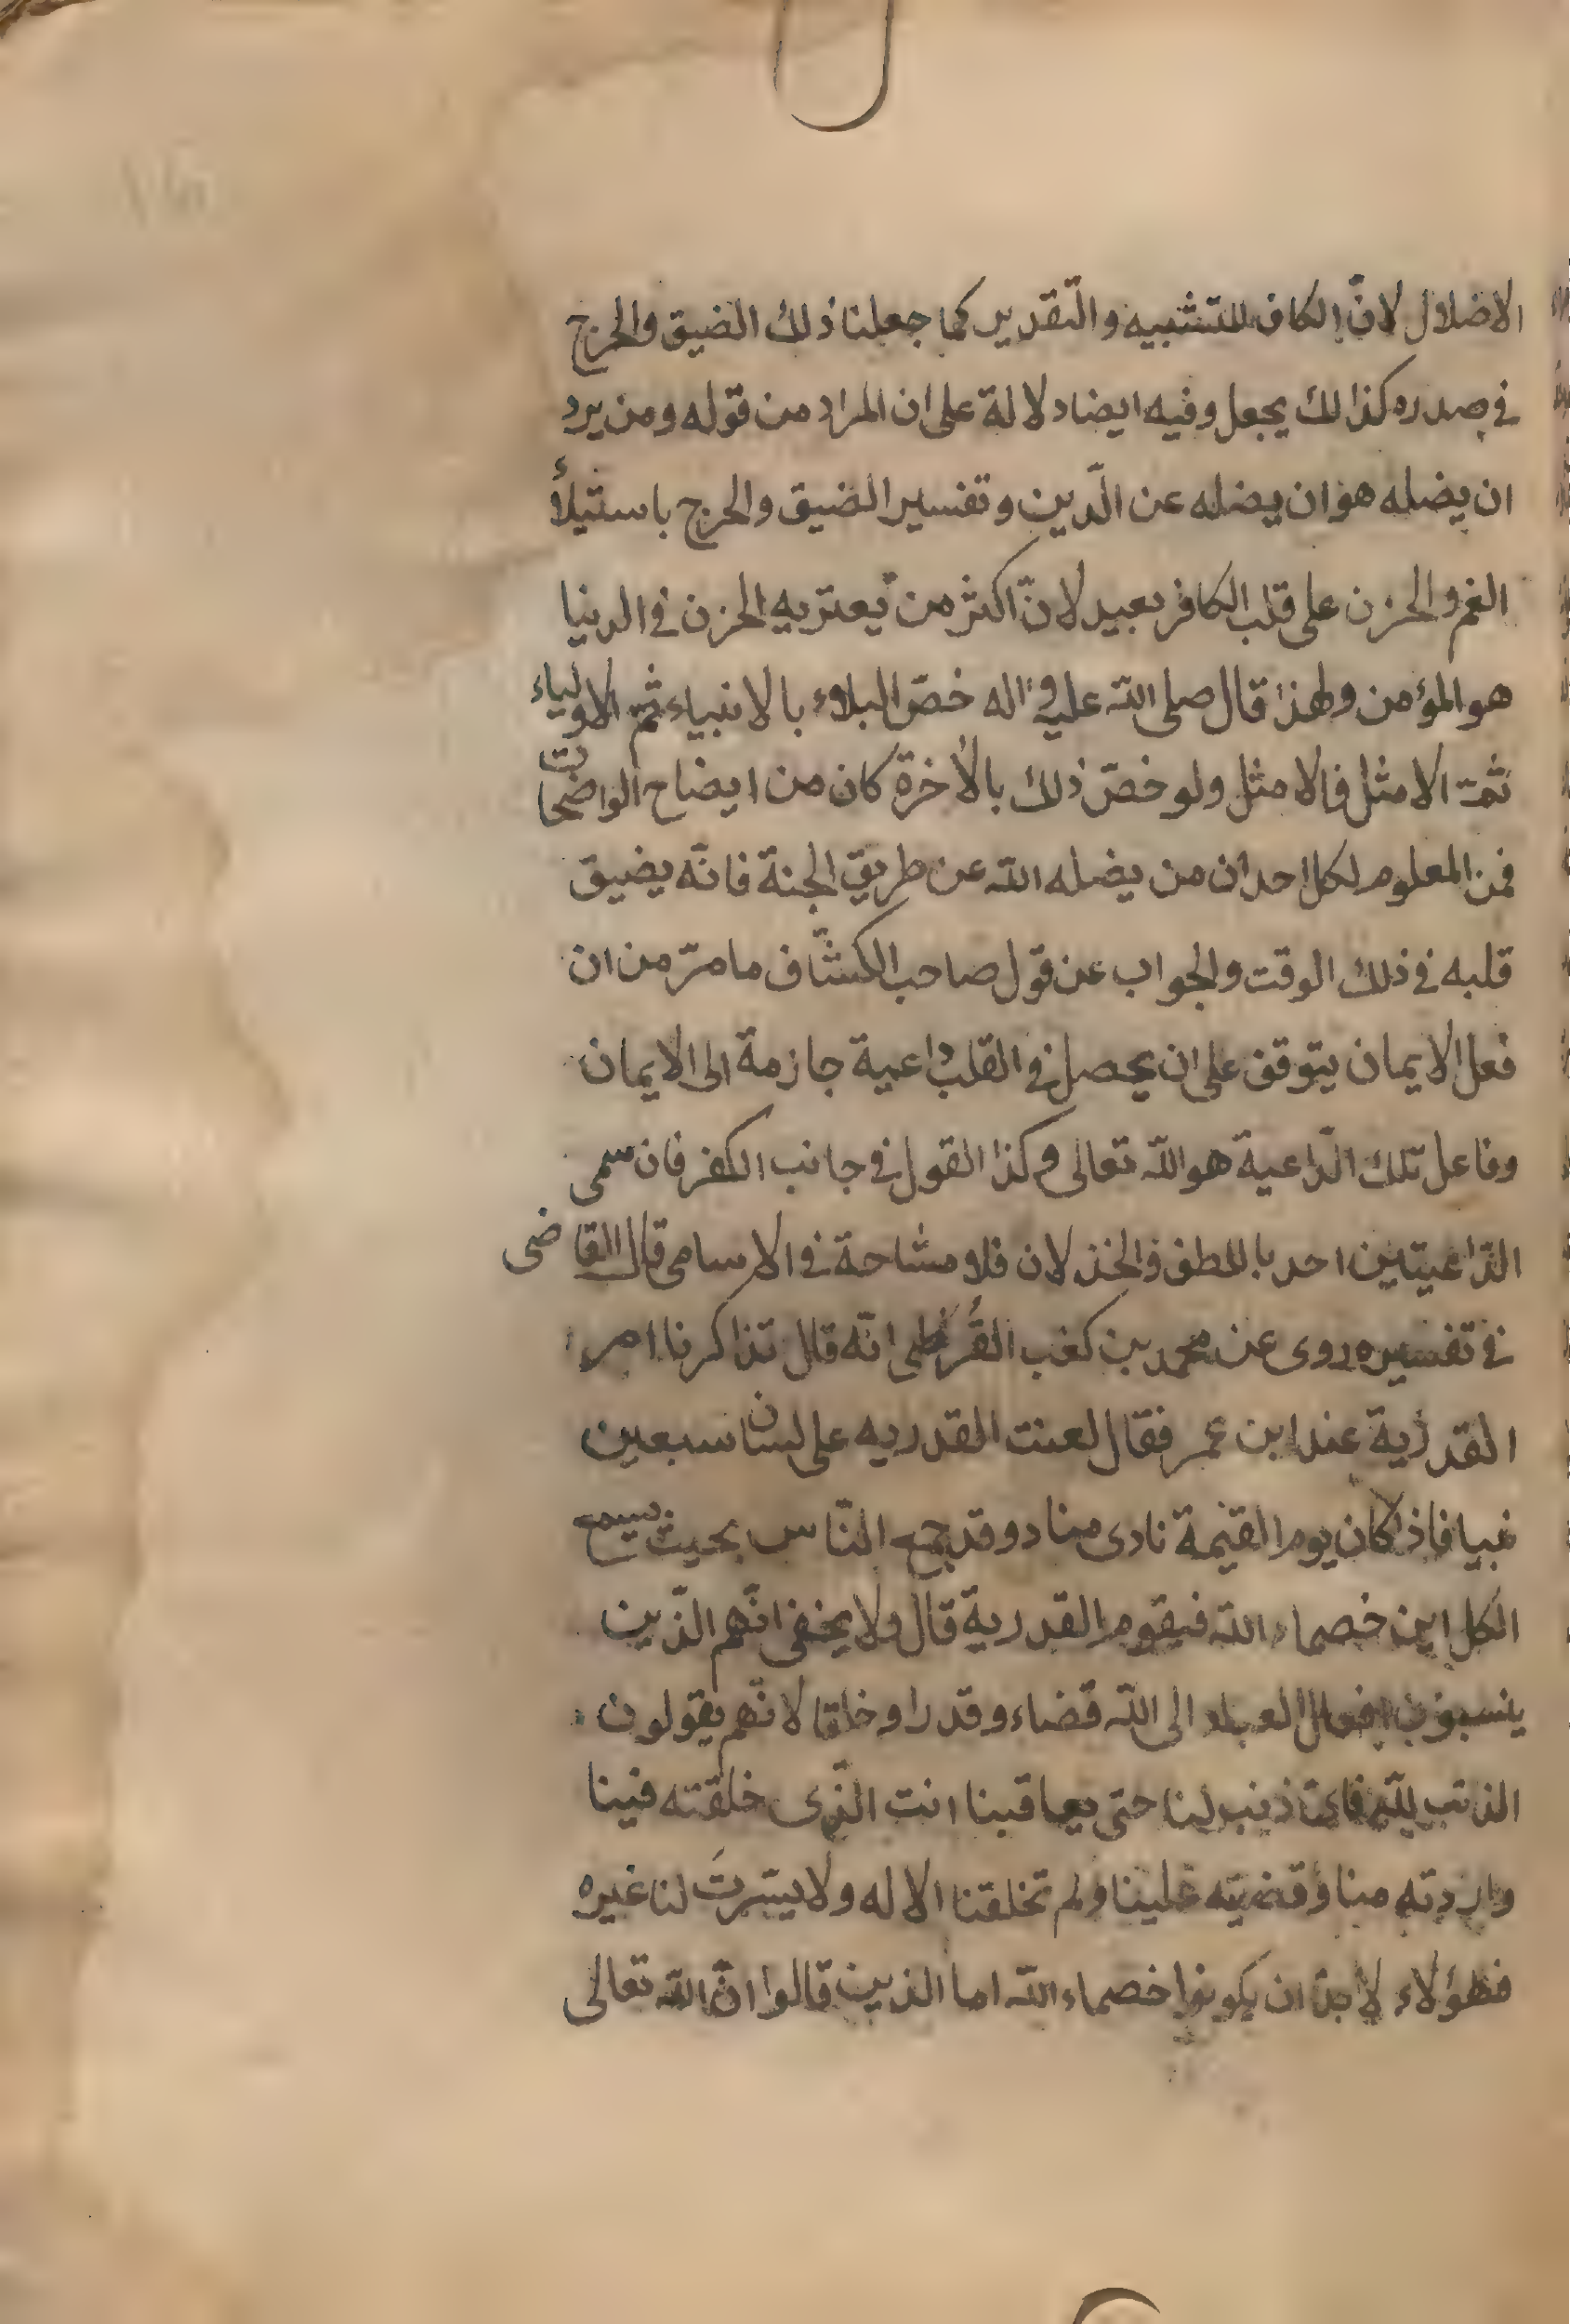 الاضلال لانّ الكاف للتشبيه والتّقدير كما جعلنا ذلك الضيق والحرج
في صدره كذالك يجعل وفيه ايضا دلالة على ان المراد من قوله ومن يرد
ان يضله هو ان يضله عن الدّين وتفسير الضيق والحرج باستيلأ
الغم والحزن على قلب الكافر بعيد لانّ اكثر من يعتريه الحزن في الدنيا
هو المؤمن ولهذا قال صلى الله عليه واله خصّ البلاء بالانبياء ثم الاولياء
ثمّ الامثل فالامثل ولو خصّ ذلك بالأخرة كان من ايضاح الواضحات
فمن المعلوم لكل احد ان من يضله الله عن طريق الجنة فانّه يضيق
قلبه في ذلك الوقت والجواب عن قول صاحب الكشّاف ما مرّ من ان
فعل الايمان يتوقف على ان يحصل في القلب داعية جازمة الى الايمان
وفاعل تلك الدّاعية هو الله تعالى وكذا القول في جانب الكفر فان سمى
الدّاعيتين احد باللطف والخذلان فلا مشاحة في الاسامى قال القاضى
في تفسيره روى عن محمد بن كعب القُرظى انّه قال تذاكرنا امر
القدرية عند ابن عمر فقال لعنت القدريه على لسان سبعين
نبيا فاذا كان يوم القيمة نادى مناد وقد جمع النّاس بحيث يسمع
الكل اين خصماء الله فيقوم القدرية قال ولا يخفى انّهم الذّين
ينسبون افعال العباد الى الله قضاء وقدرا وخلقا لانّهم يقولون
الذنب لله فاىّ ذنب لنا حتى يعاقبنا انت الذّى خلقته فينا
واردته منا وقضيته علينا ولم تخلقنا الا له ولا يسّرتَ لنا غيره
فهؤلاء لا بدّ ان يكونوا خصماء الله اما الذين قالوا انّ الله تعالى